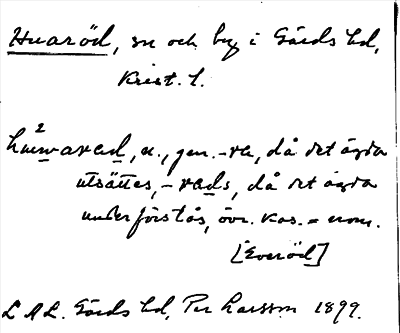 Huaröd, sn och by i Gärds hd,
Krist. l.
hu²warad, n., gen. -ra, då det ägda
utsättes, -rads, då det ägda
underförstås, övr. kas. = nom.
[Everöd]
L A L. Gärds hd, Per Larsson 1899.